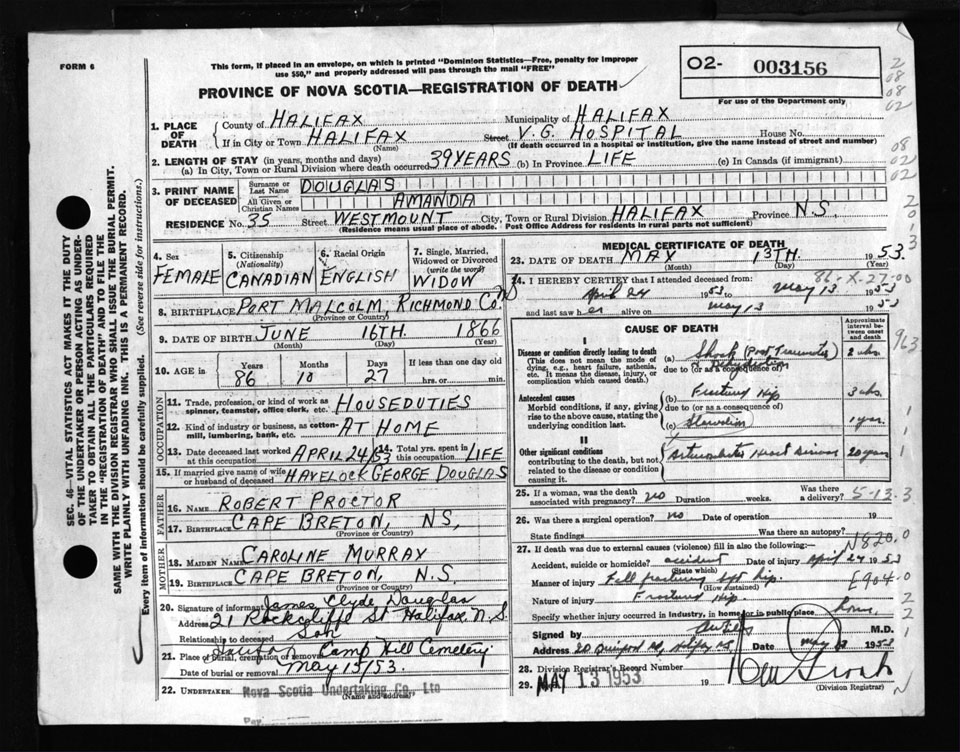 FORM 6
This form, if placed in an envelope, on which is printed "Dominion Statistics—Free, penalty for improper
use $50," and properly addressed will pass through the mail "FREE"
PROVINCE OF NOVA SCOTIA—REGISTRATION OF DEATH
02- 003156
For use of the Department only
SEC. 46—VITAL STATISTICS ACT MAKES IT THE DUTY
OF THE UNDERTAKER OR PERSON ACTING AS UNDER-
TAKER TO OBTAIN ALL THE PARTICULARS REQUIRED
IN THE "REGISTRATION OF DEATH" AND TO FILE THE
SAME WITH THE DIVISION REGISTRAR WHO SHALL ISSUE THE BURIAL PERMIT.
WRITE PLAINLY WITH UNFADING INK. THIS IS A PERMANENT RECORD.
Every item of information should be carefully supplied. (See reverse side for instructions.)
1. PLACE OF DEATH
County of HALIFAX Municipality of HALIFAX
If in City or Town HALIFAX Street V.G. HOSPITAL House No.
(Name) (If death occurred in a hospital or institution, give the name instead of street and number)
2. LENGTH OF STAY (in years, months and days)
(a) In City, Town or Rural Division where death occurred 39 YEARS (b) In Province LIFE (c) In Canada (if immigrant)
3. PRINT NAME OF DECEASED
Surname or Last Name DOUGLAS
All Given or Christian Names AMANDA
RESIDENCE No. 35 Street WESTMOUNT City, Town or Rural Division HALIFAX Province N.S.
(Residence means usual place of abode. Post Office Address for residents in rural parts not sufficient)
4. Sex FEMALE
5. Citizenship (Nationality) CANADIAN
6. Racial Origin ENGLISH
7. Single, Married, Widowed or Divorced (write the word) WIDOW
8. BIRTHPLACE PORT MALCOLM, RICHMOND CO.
(Province or Country)
9. DATE OF BIRTH JUNE 16TH. 1866
(Month) (Day) (Year)
10. AGE in Years 86 Months 10 Days 27 If less than one day old hrs. or min.
OCCUPATION
11. Trade, profession, or kind of work as spinner, teamster, office clerk, etc. HOUSEDUTIES
12. Kind of industry or business, as cotton-mill, lumbering, bank, etc. AT HOME
13. Date deceased last worked at this occupation APRIL 24/53 Total yrs. spent in this occupation LIFE
15. If married give name of wife or husband of deceased HAVELOCK GEORGE DOUGLAS
FATHER
16. NAME ROBERT PROCTOR
17. BIRTHPLACE CAPE BRETON, NS,
(Province or Country)
MOTHER
18. MAIDEN NAME CAROLINE MURRAY
19. BIRTHPLACE CAPE BRETON, N.S.
(Province or Country)
20. Signature of informant James Clyde Douglas
Address 21 Rockcliffe St Halifax, N.S.
Relationship to deceased Son
21. Place of burial, cremation or removal Camp Hill Cemetery
Date of burial or removal May 15/53.
22. UNDERTAKER Nova Scotia Undertaking Co., Ltd
(Name and address)
MEDICAL CERTIFICATE OF DEATH
23. DATE OF DEATH MAY 13TH. 1953
(Month) (Day) (Year)
24. I HEREBY CERTIFY that I attended deceased from:
April 24 1953 to May 13 1953
and last saw her alive on May 13 1953
CAUSE OF DEATH
Approximate interval between onset and death
I
Disease or condition directly leading to death
(This does not mean the mode of dying, e.g., heart failure, asthenia, etc. It means the disease, injury, or complication which caused death.)
(a) Shock (Post Traumatic)
due to (or as a consequence of)
Antecedent causes
Morbid conditions, if any, giving rise to the above cause, stating the underlying condition last.
(b) Fracture Hip 3 wks
due to (or as a consequence of)
(c) 1 year
II
Other significant conditions
contributing to the death, but not related to the disease or condition causing it.
Heart Disease 20 years
25. If a woman, was the death associated with pregnancy? no Duration weeks. Was there a delivery?
26. Was there a surgical operation? no Date of operation 19
State findings Was there an autopsy?
27. If death was due to external causes (violence) fill in also the following:—
Accident, suicide or homicide? accident Date of injury April 24 1953
(State which)
Manner of injury Fell fracturing hip.
(How sustained)
Nature of injury Fracture Hip.
Specify whether injury occurred in Industry, in home or in public place home
Signed by M.D.
Address Date May 13 1953
28. Division Registrar's Record Number
29. MAY 13 1953 19
(Division Registrar)
N820.0
E904.0
963